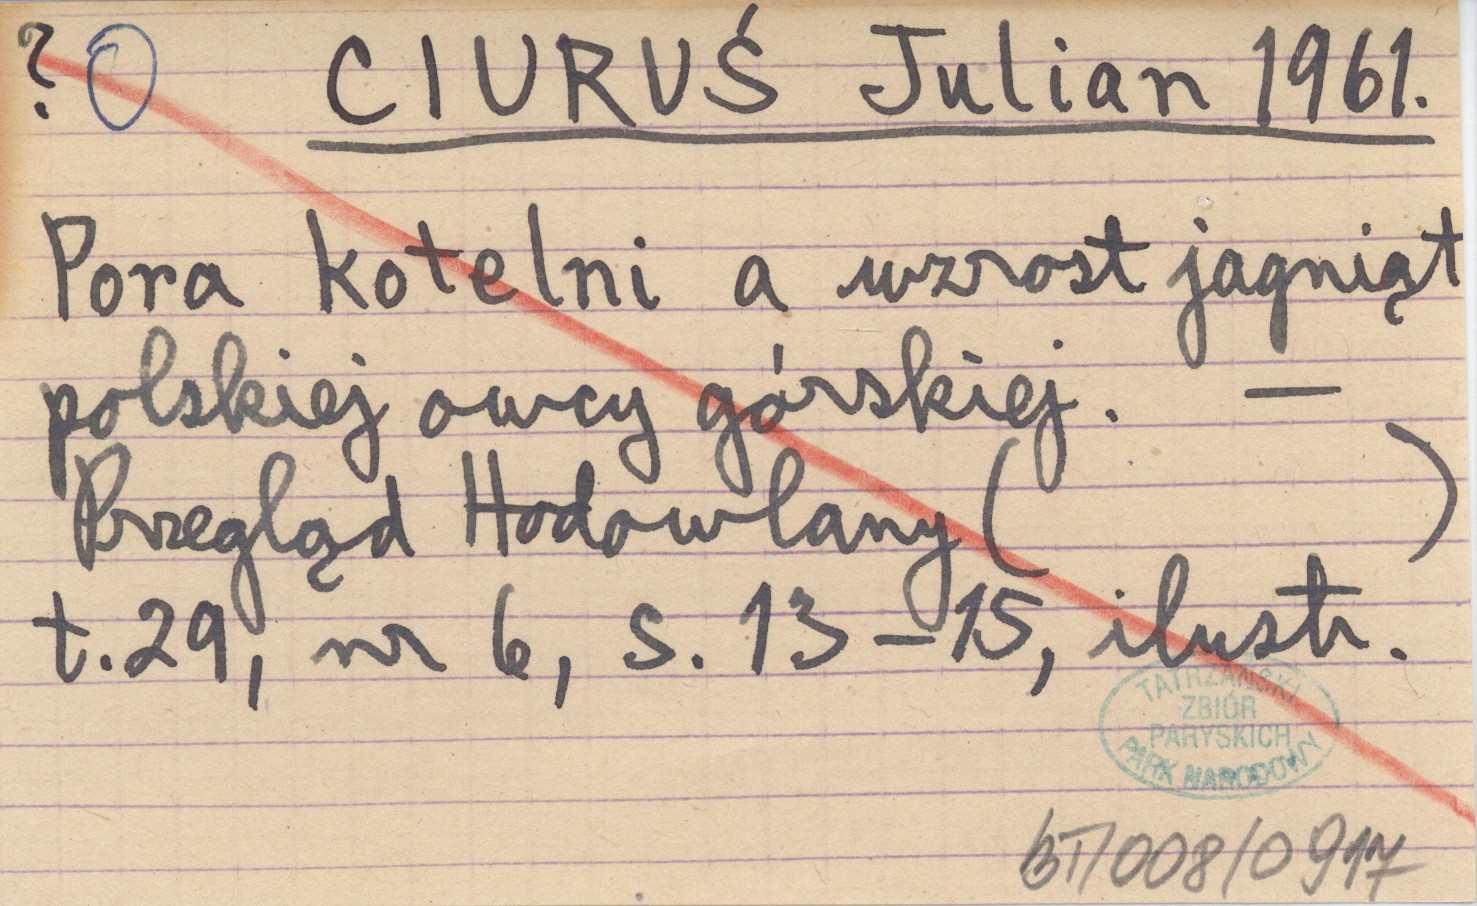 ? O CIURUŚ Julian 1961.
Pora kotelni a wzrost jagniąt
polskiej owcy górskiej. —
Przegląd Hodowlany ( )
t. 29, nr 6, s. 13-15, ilustr.
TATRZAŃSKI
ZBIÓR
PARYSKICH
PARK NARODOWY
BT/008/0917